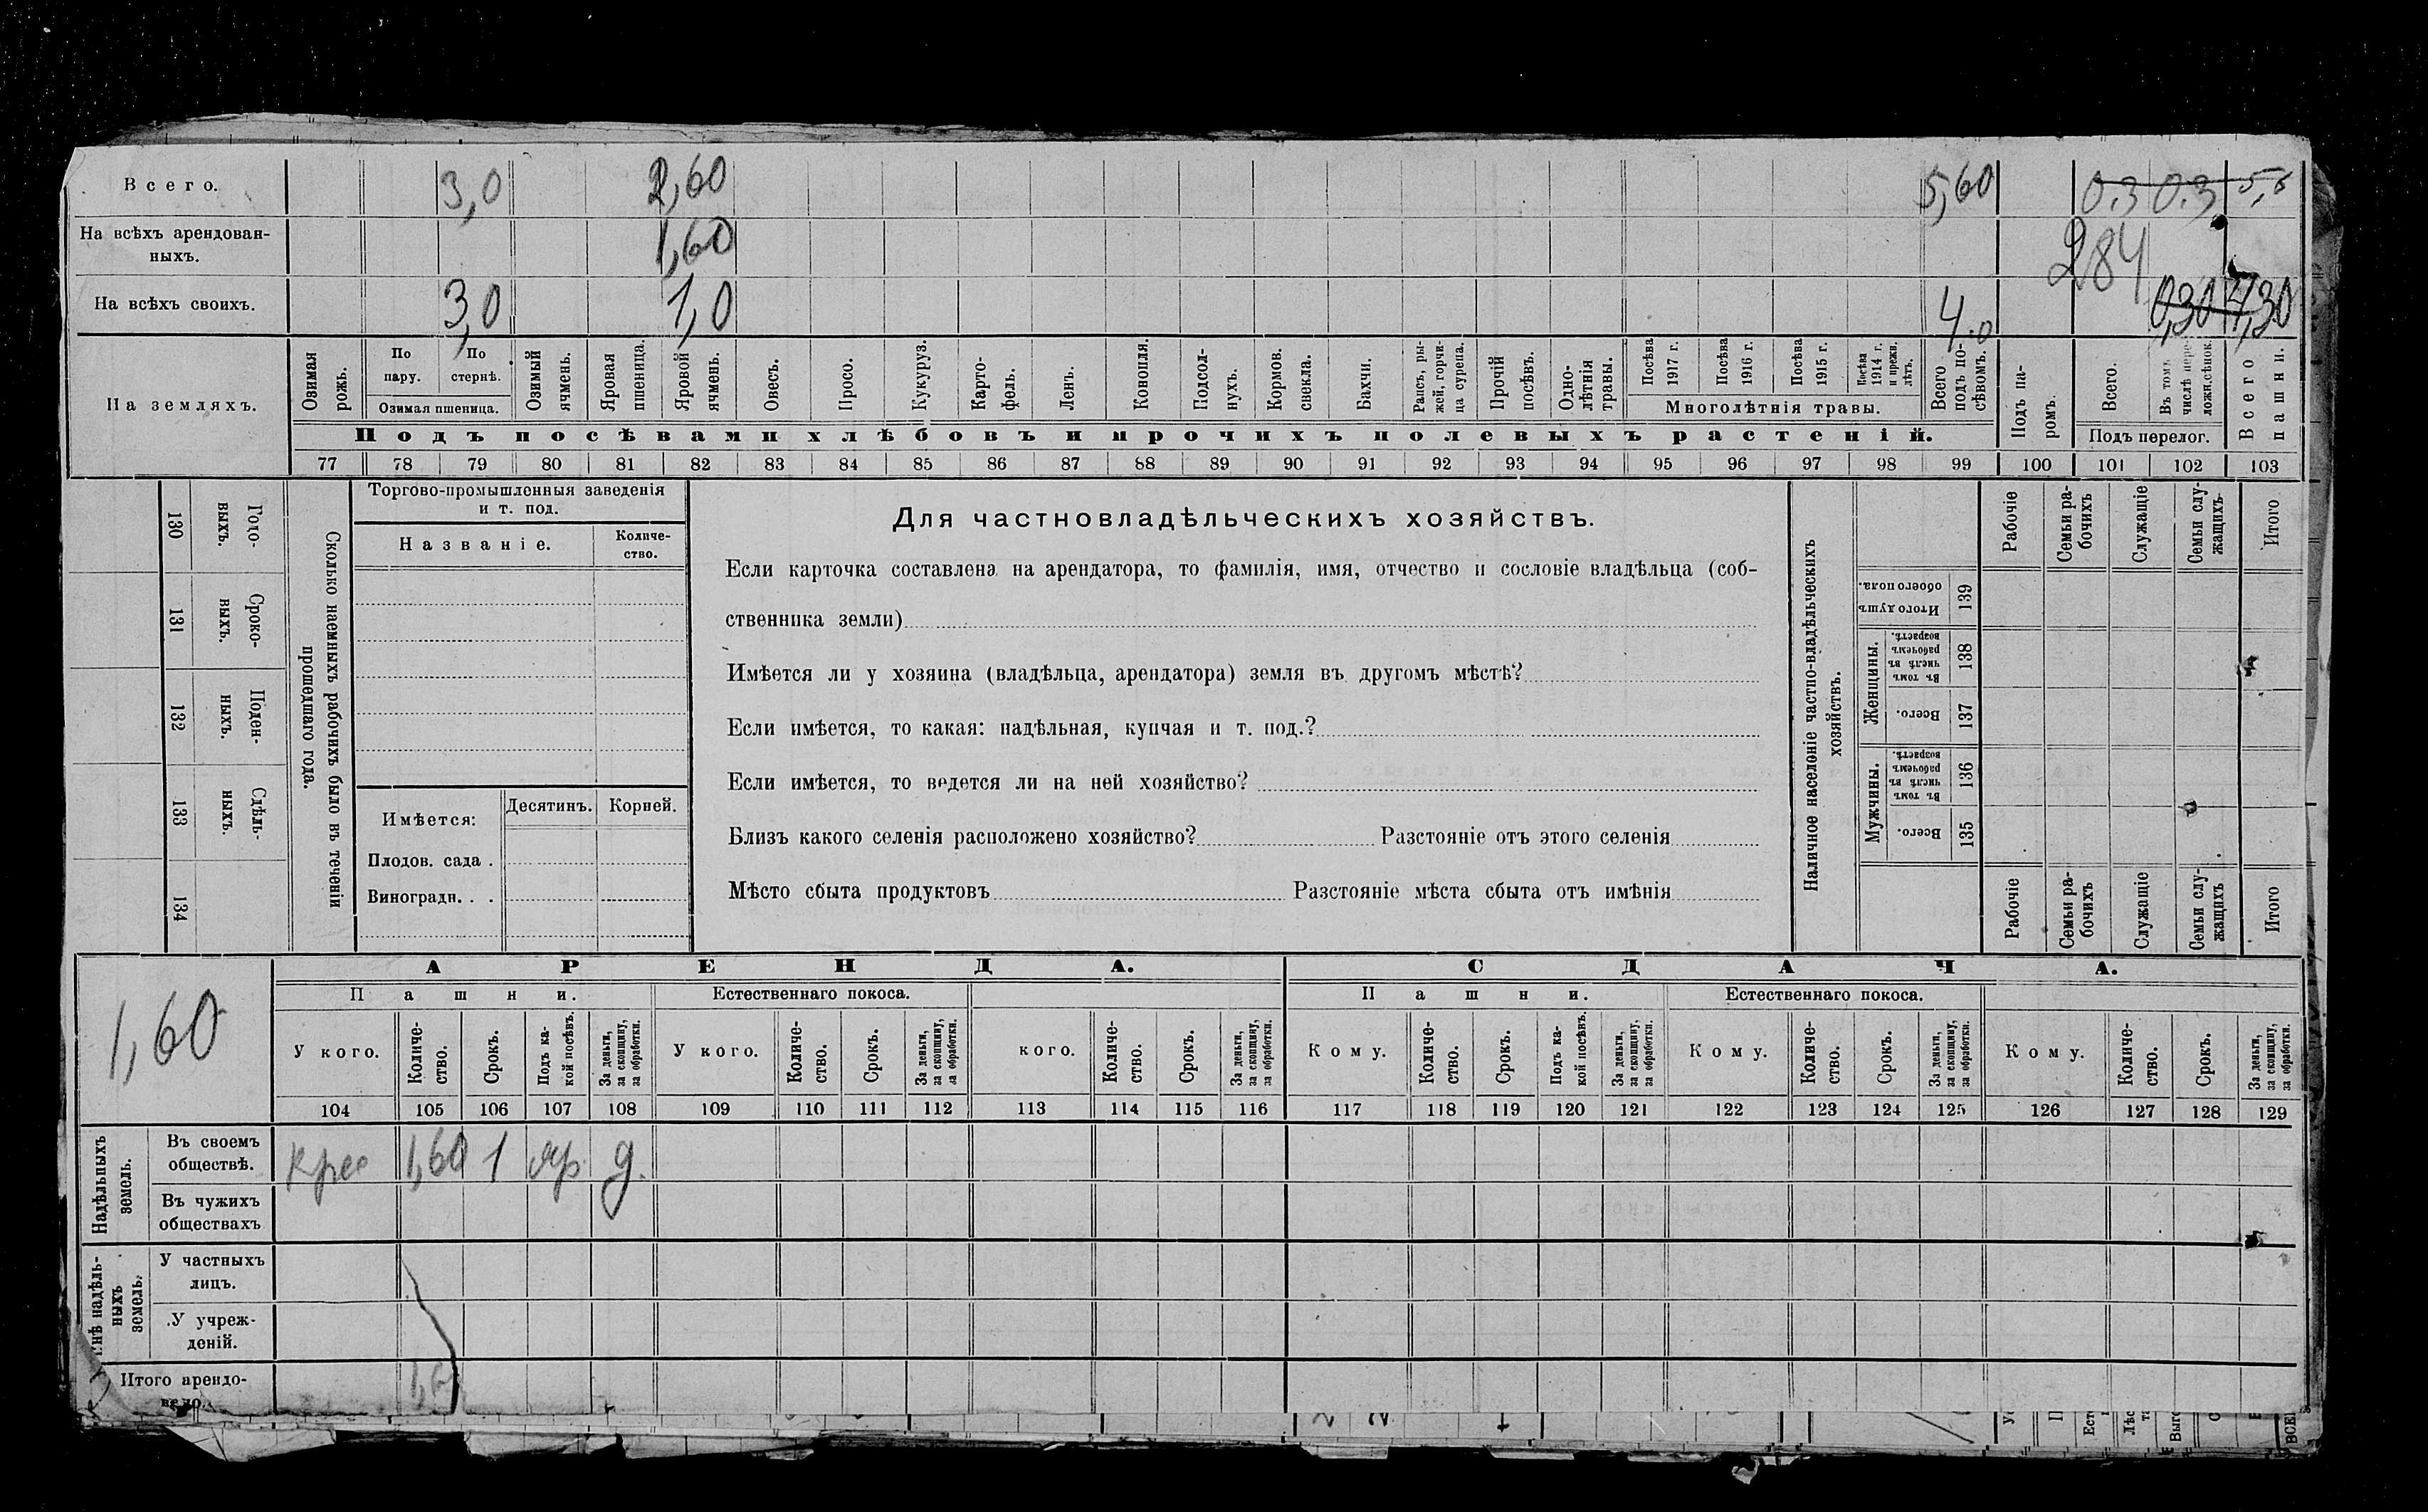 Всего. 3,0 2,60 5,60 0.3 0.3
На всѣхъ арендован-
ныхъ. 1,60 284
На всѣхъ своихъ. 3,0 1,0 4.0 0,30 4,30
На земляхъ.
Озимая
рожь.
По
пару.
По
стернѣ.
Озимая пшеница.
Озимый
ячмень.
Яровая
пшеница.
Яровой
ячмень.
Овесъ.
Просо.
Кукуруз.
Карто-
фель.
Ленъ.
Конопля.
Подсол-
нухъ.
Кормов.
свекла.
Бахчи.
Рапсъ, ры-
жей, горчи-
ца сурепа.
Прочій
посѣвъ.
Одно-
лѣтнія
травы.
Посѣва
1917 г.
Посѣва
1916 г.
Посѣва
1915 г.
Посѣва
1914 г.
и прежн.
лѣтъ.
Многолѣтнія травы.
Всего
подъ по-
сѣвомъ.
Подъ посѣвами хлѣбовъ и прочихъ полевыхъ растеній.
Подъ па-
ромъ.
Всего.
Въ томъ
числѣ пере-
ложн.сѣнок.
Подъ перелог.
Всего
пашни.
77 78 79 80 81 82 83 84 85 86 87 88 89 90 91 92 93 94 95 96 97 98 99 100 101 102 103
130 Годо-
выхъ.
131 Сроко-
ныхъ.
132 Поден-
ныхъ.
133 Сдѣль-
ныхъ.
134
Сколько наемныхъ рабочихъ было въ теченіи
прошедшаго года.
Торгово-промышленныя заведенія
и т. под.
Названіе.
Количе-
ство.
Имѣется:
Десятинъ. Корней.
Плодов. сада .
Виноградн. . .
Для частновладѣльческихъ хозяйствъ.
Если карточка составлена на арендатора, то фамилія, имя, отчество и сословіе владѣльца (соб-
ственника земли)
Имѣется ли у хозяина (владѣльца, арендатора) земля въ другомъ мѣстѣ?
Если имѣется, то какая: надѣльная, купчая и т. под.?
Если имѣется, то ведется ли на ней хозяйство?
Близъ какого селенія расположено хозяйство? Разстояніе отъ этого селенія
Мѣсто сбыта продуктовъ Разстояніе мѣста сбыта отъ имѣнія
Наличное населеніе частно-владѣльческихъ
хозяйствъ.
Рабочіе
Семьи ра-
бочихъ
Служащіе
Семьи слу-
жащихъ
Итого
Итого душъ
обоего пола. 139
Женщины.
Въ томъ
числѣ въ
рабочемъ
возрастѣ. 138
Всего. 137
Мужчины.
Въ томъ
числѣ въ
рабочемъ
возрастѣ. 136
Всего. 135
Рабочіе
Семьи ра-
бочихъ
Служащіе
Семьи слу-
жащихъ
Итого
1,60
АРЕНДА. СДАЧА.
Пашни. Естественнаго покоса. Пашни. Естественнаго покоса.
У кого.
Количе-
ство.
Срокъ.
Подъ ка-
кой посѣвъ.
За деньги,
за скопщину,
за обработки.
У кого.
Количе-
ство.
Срокъ.
За деньги,
за скопщину,
за обработки.
кого.
Количе-
ство.
Срокъ.
За деньги,
за скопщину,
за обработки.
Кому.
Количе-
ство.
Срокъ.
Подъ ка-
кой посѣвъ.
За деньги,
за скопщину,
за обработки.
Кому.
Количе-
ство.
Срокъ.
За деньги,
за скопщину,
за обработки.
Кому.
Количе-
ство.
Срокъ.
За деньги,
за скопщину,
за обработки.
104 105 106 107 108 109 110 111 112 113 114 115 116 117 118 119 120 121 122 123 124 125 126 127 128 129
Надѣльныхъ
земель.
Въ своемъ
обществѣ. Крес 1,60 1 яр. д.
Въ чужихъ
обществахъ
надѣль-
ныхъ
земель.
У частныхъ
лицъ.
У учреж-
деній.
Итого арендо-